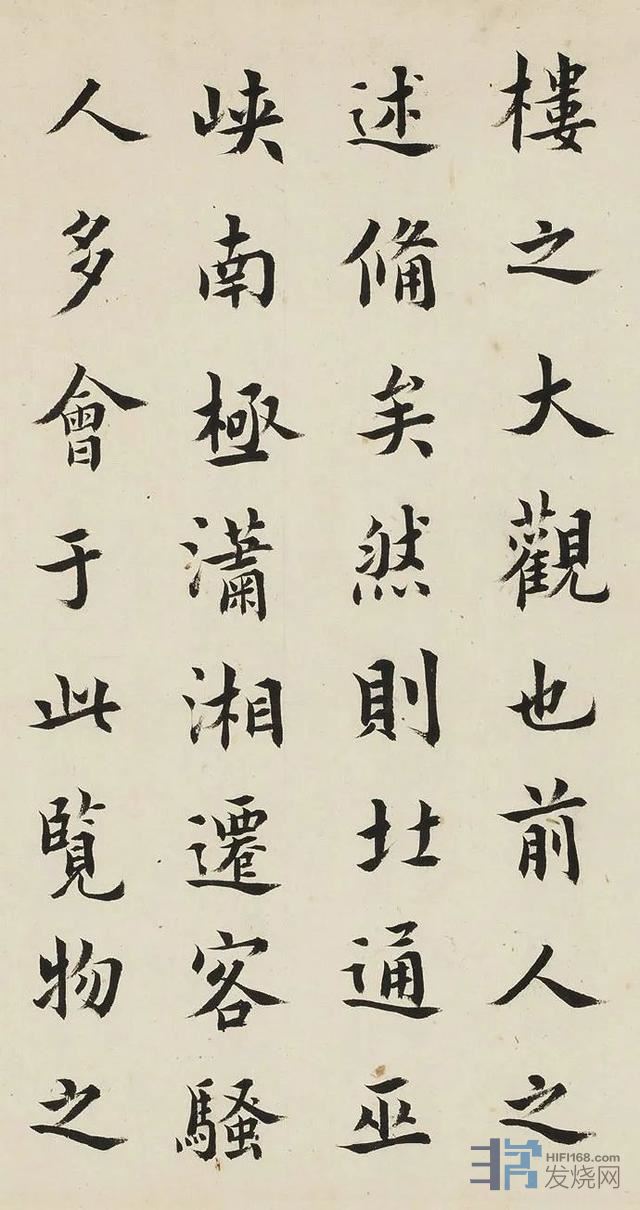 樓之大觀也前人之
述備矣然則北通巫
峽南極瀟湘遷客騷
人多會于此覽物之
HIFI168.com
发烧网